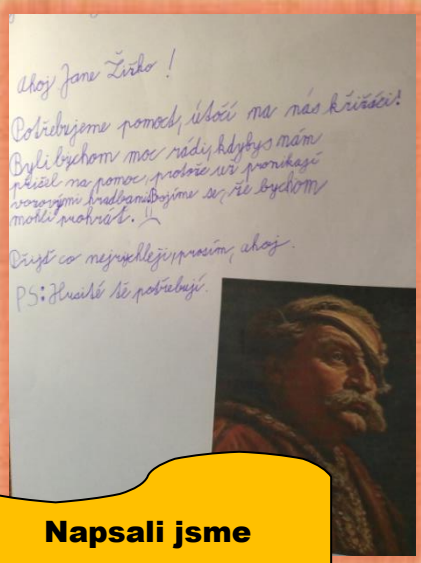 Ahoj Jane Žižko!
Potřebujeme pomoct, útočí na nás křižáci!
Byli bychom moc rádi, kdybys nám
přišel na pomoc, protože už pronikají
vozovými hradbami. Bojíme se, že bychom
mohli prohrát.
Přijď co nejrychleji, prosím, ahoj.
PS: Husité tě potřebují.
Napsali jsme